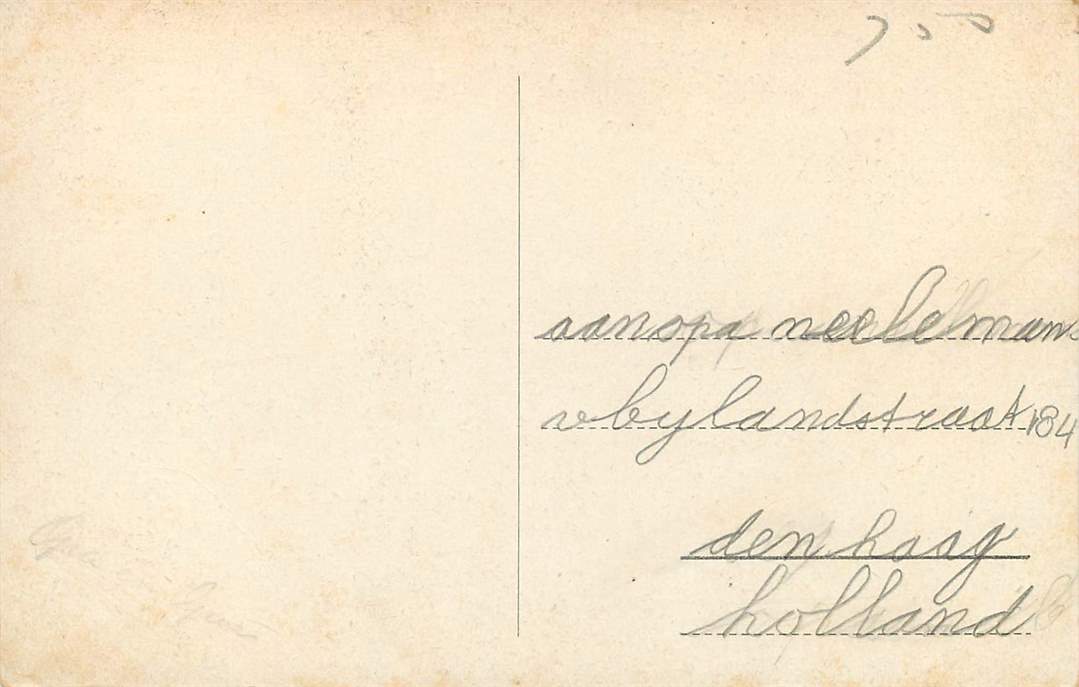 750
aan opa neelemans
v bylandstraat 184
den haag
holland